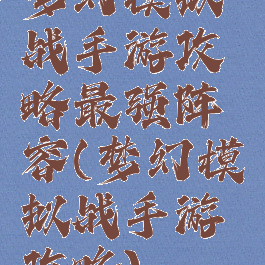 梦幻模拟
战手游攻
略最强阵
容(梦幻模
拟战手游
攻略)